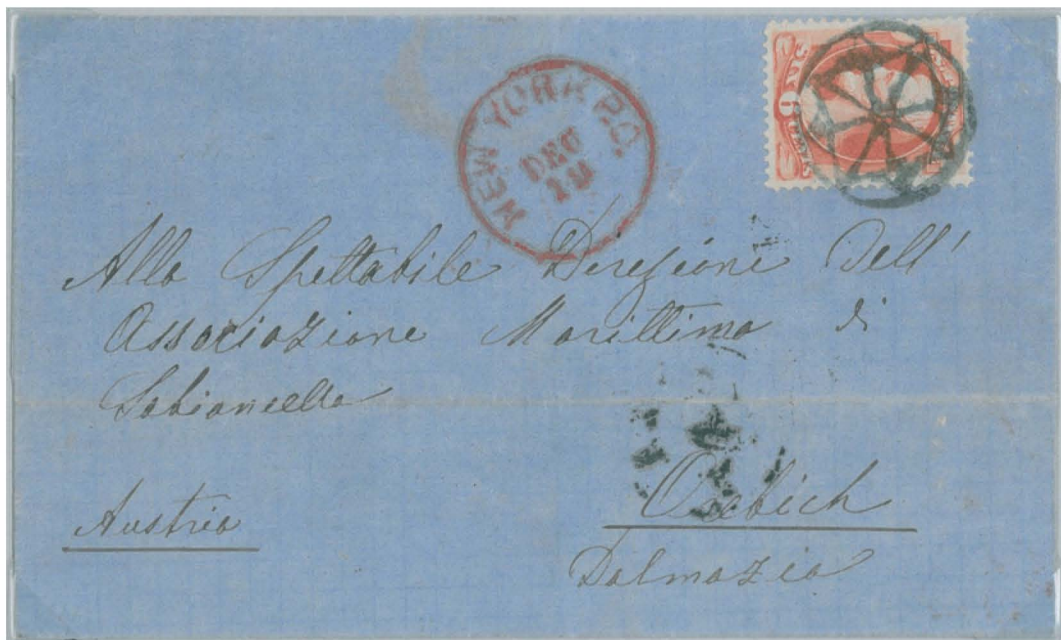 NEW YORK P.O.
DEC
19
Alla Spettabile Direzione Dell'
Associazione Marittima di
Sabioncello
Orebich
Austria
Dalmazia